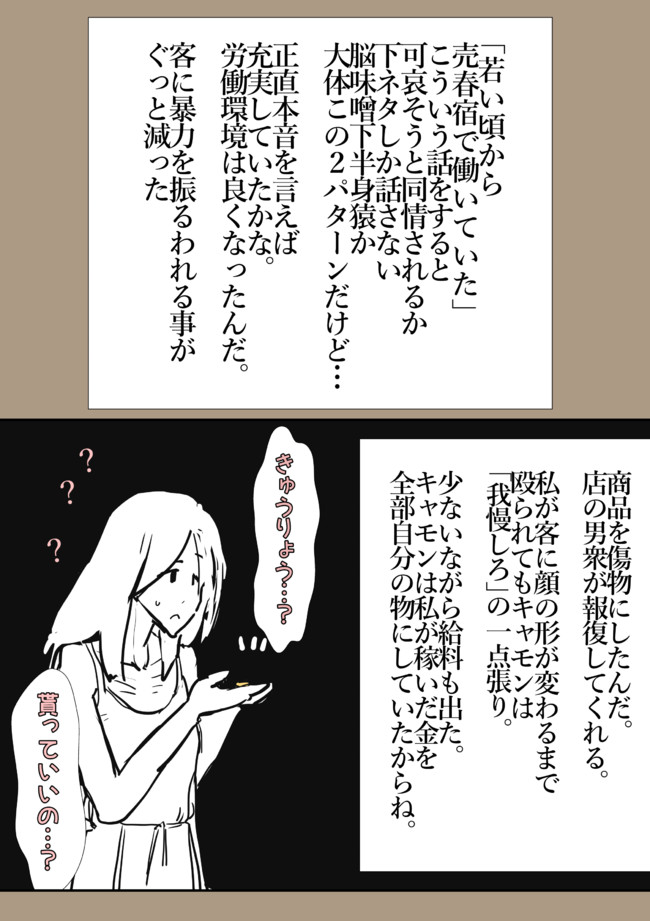 「若い頃から
売春宿で働いていた」
こういう話をすると
可哀そうと同情されるか
下ネタしか話さない
脳味噌下半身猿か
大体この２パターンだけど…
正直本音を言えば
充実していたかな。
労働環境は良くなったんだ。
客に暴力を振るわれる事が
ぐっと減った
商品を傷物にしたんだ。
店の男衆が報復してくれる。
私が客に顔の形が変わるまで
殴られてもキャモンは
「我慢しろ」の一点張り。
少ないながら給料も出た。
キャモンは私が稼いだ金を
全部自分の物にしていたからね。
きゅうりょう…?
?
?
?
貰っていいの…?